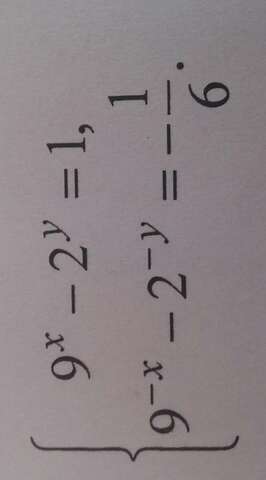 9^x − 2^y = 1,
9^{−x} − 2^{−y} = −\frac{1}{6}.